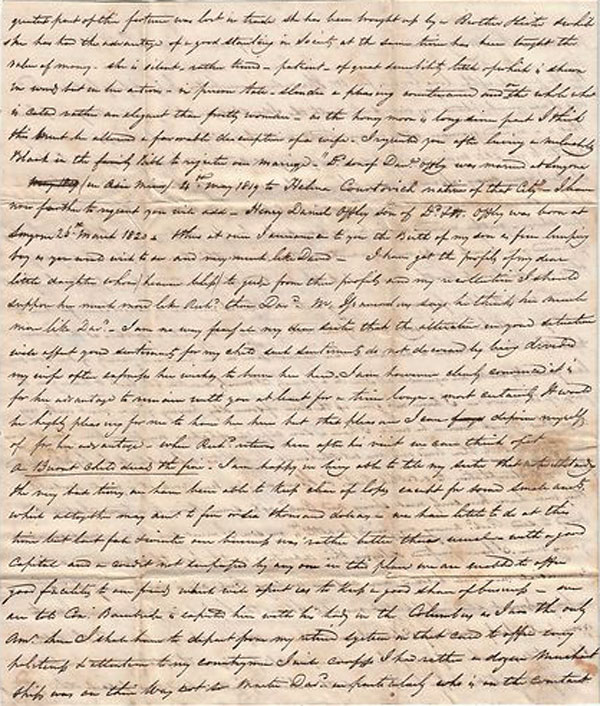 greatest part of the fortune was lost in trade she has been brought up by a Brother
she has had the advantage of a good standing in Society at the same time has been taught the
value of money. she is silent, rather timid – patient – of great sensibility little of which is shewn
in word but in her actions – in person tall – slender a pleasing countenance and on the whole what
is called rather an elegant than pretty woman – as the honey moon is long since past I think
this must be allowed a favorable description of a wife. I request you after leaving a
Blank in the family bible to register our marriage – Dd. son of Dan. Offley was married at Smyrna
(in Asia Minor) May 1819 to Helena Courtovich native of that City – I have
now further to request you will add – Henry Daniel Offley son of Dd. Offley was born at
Smyrna March 1820. Thus at once I announce to you the Birth of my son a fine
boy as you could wish to see and very much like David – I have got the profile of my dear
little daughter whom (heaven bless) to judge from this profile and my recollection I should
suppose her much more like Rich. than Dav. Mr. says he thinks her much
more like Dav. – I am no way fearful my dear sister that the alteration in your situation
will affect your sentiments for my child such sentiments do not decrease by being divided
my wife often expresses her wishes to have her here. I am however clearly convinced it is
for her advantage to remain with you at least for a time longer – most certainly it would
be highly pleasing for me to have her here but this pleasure I can deprive myself
of for her advantage – when Rich. returns here after his visit we can think of it
A Burnt child dread the fire. I am happy in being able to tell my sister that notwithstanding
the very bad times we have been able to keep clear of loss except for some small
which altogether may amt. to five or six thousand dollars – we have little to do at this
time but last our business was rather better than usual – with a good
Capital and a credit not surpassed by any one in this place we are enabled to offer
good facility to our friends which will assist us to keep a good share of business – we
are told Com. Bainbridge is expected here with his lady in the Columbus as I am the only
Amn. here I shall have to depart from my retired system in that case to offer every
politeness & attention to my countrymen I will confess I had rather a dozen Merchant
ships was on their way not so Master Dav. – particularly who is in the constant